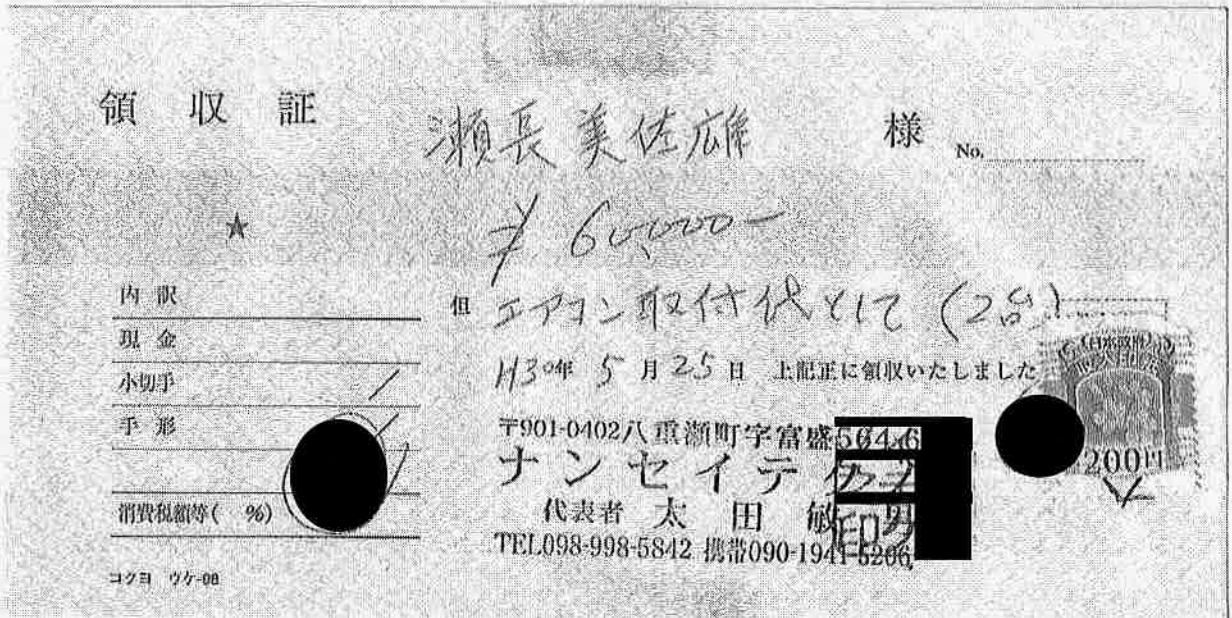 領収証
瀬長美佐雄 様 No.
★
¥60,000-
但 エアコン取付代として(2台)
H30年 5月25日 上記正に領収いたしました
内訳
現金
小切手
手形
消費税額等( %)
〒901-0402八重瀬町字富盛564-6
ナンセイテ
代表者 太田敏
TEL098-998-5842 携帯090-1941-5206
200円
コクヨ ウケ-98